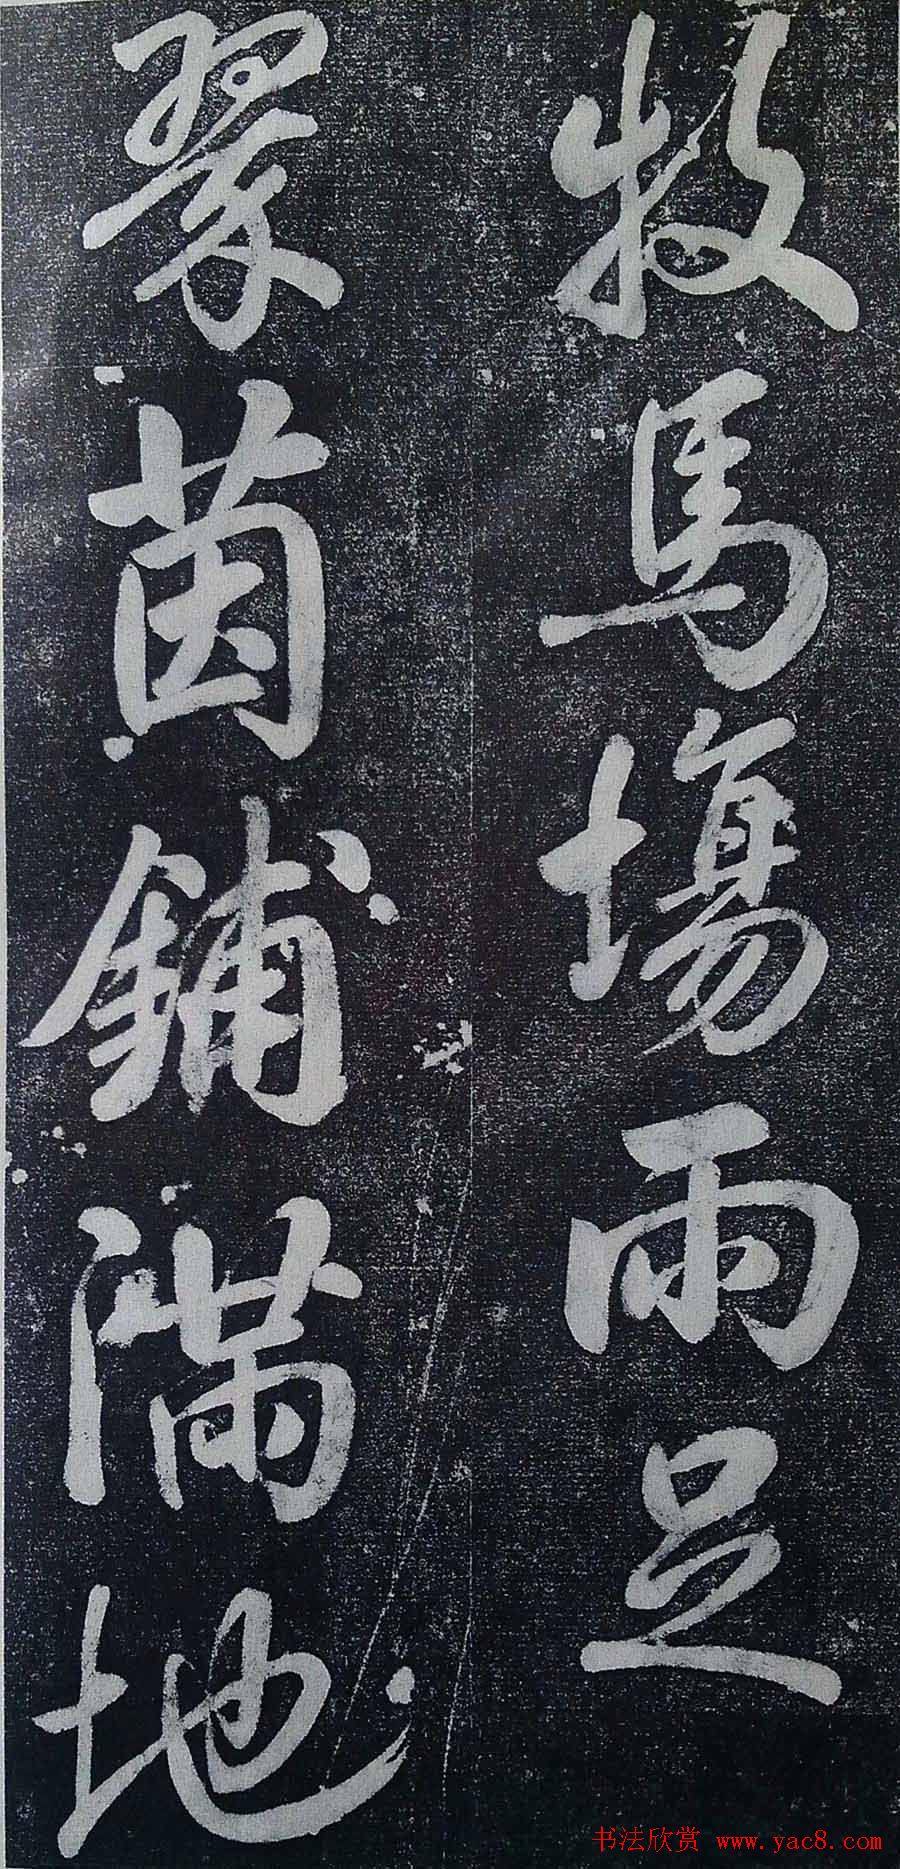 牧馬場雨足
翠茵鋪滿地
书法欣赏 www.yac8.com